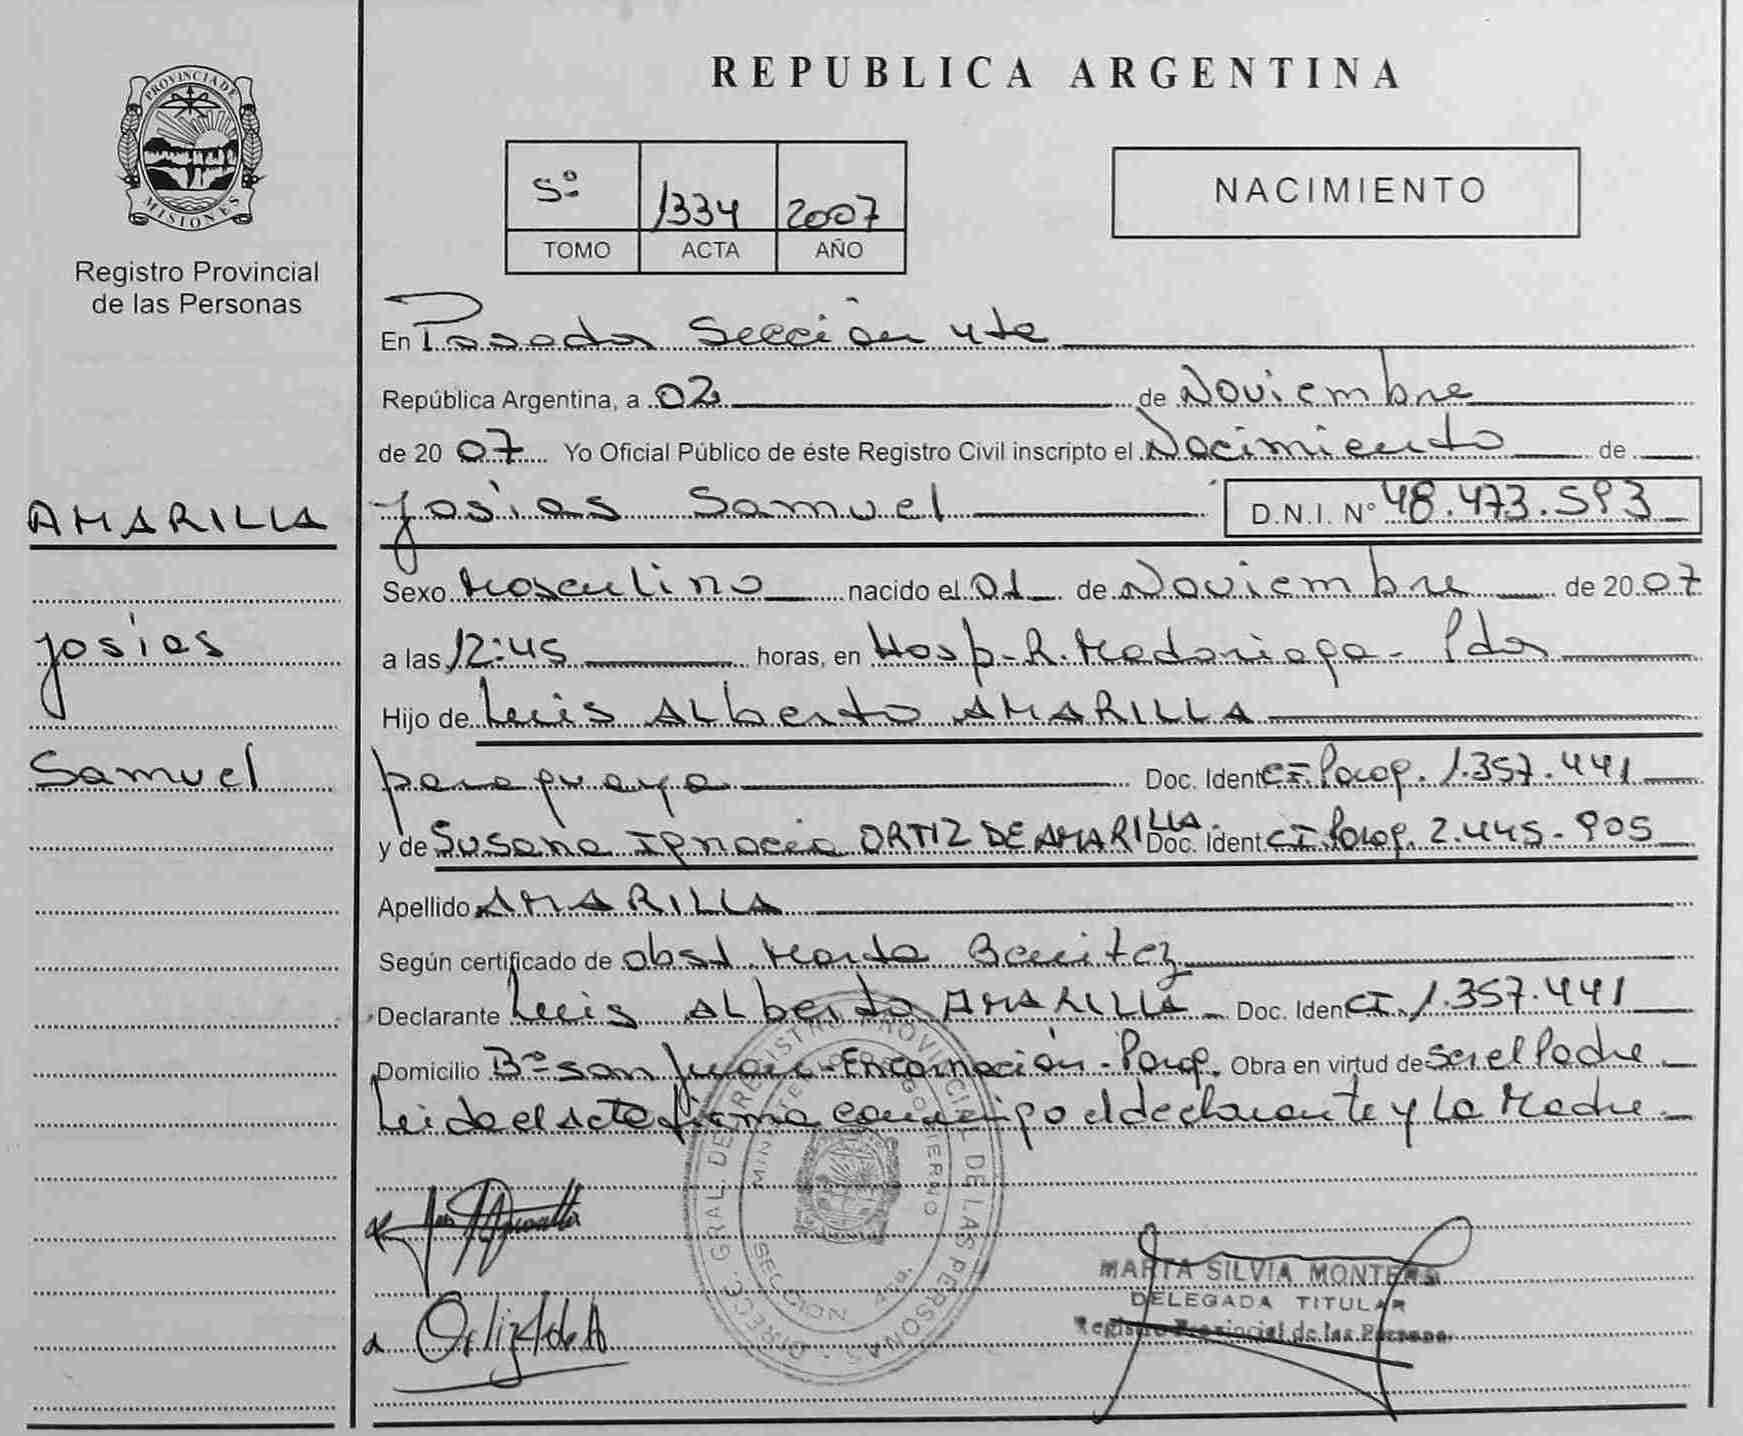 PROVINCIA DE
MISIONES
Registro Provincial
de las Personas
AMARILLA
Josías
Samuel
REPUBLICA ARGENTINA
5º 1334 2007
TOMO ACTA AÑO
NACIMIENTO
En Posadas Sección 4ta
República Argentina, a 02 de Noviembre
de 2007 Yo Oficial Público de éste Registro Civil inscripto el Nacimiento de
Josías Samuel D.N.I. Nº 48.473.593
Sexo Masculino nacido el 01 de Noviembre de 2007
a las 12:45 horas, en Hosp. R. Madariaga - Pdas
Hijo de Luis ALberto AMARILLA
paraguayo Doc. Ident CI. Parag. 1.357.441
y de Susana Ignacia ORTIZ DE AMARILLA. Doc. Ident CI. Parag. 2.445.905
Apellido AMARILLA
Según certificado de obst. Marta Benitez
Declarante Luis ALberto AMARILLA Doc. Iden CI. 1.357.441
Domicilio Bº San Juan - Encarnación - Parag. Obra en virtud de ser el Padre
Leida el Acta firma conmigo el declarante y La Madre
DIRECC. GRAL. DE REGISTRO PROVINCIAL DE LAS PERSONAS
SECCION 4ta.
Ortiz de A
MARTA SILVIA MONTERO
DELEGADA TITULAR
Registro Provincial de las Personas